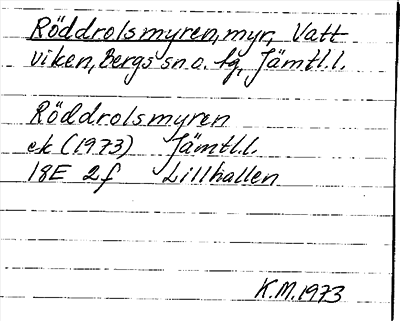 Röddrolsmyren, myr, Vatt
viken, Bergs sn o. tg, Jämtl.l.
Röddrolsmyren
ek (1973) Jämtl.l.
18E 2f Lillhallen
K.M. 1973